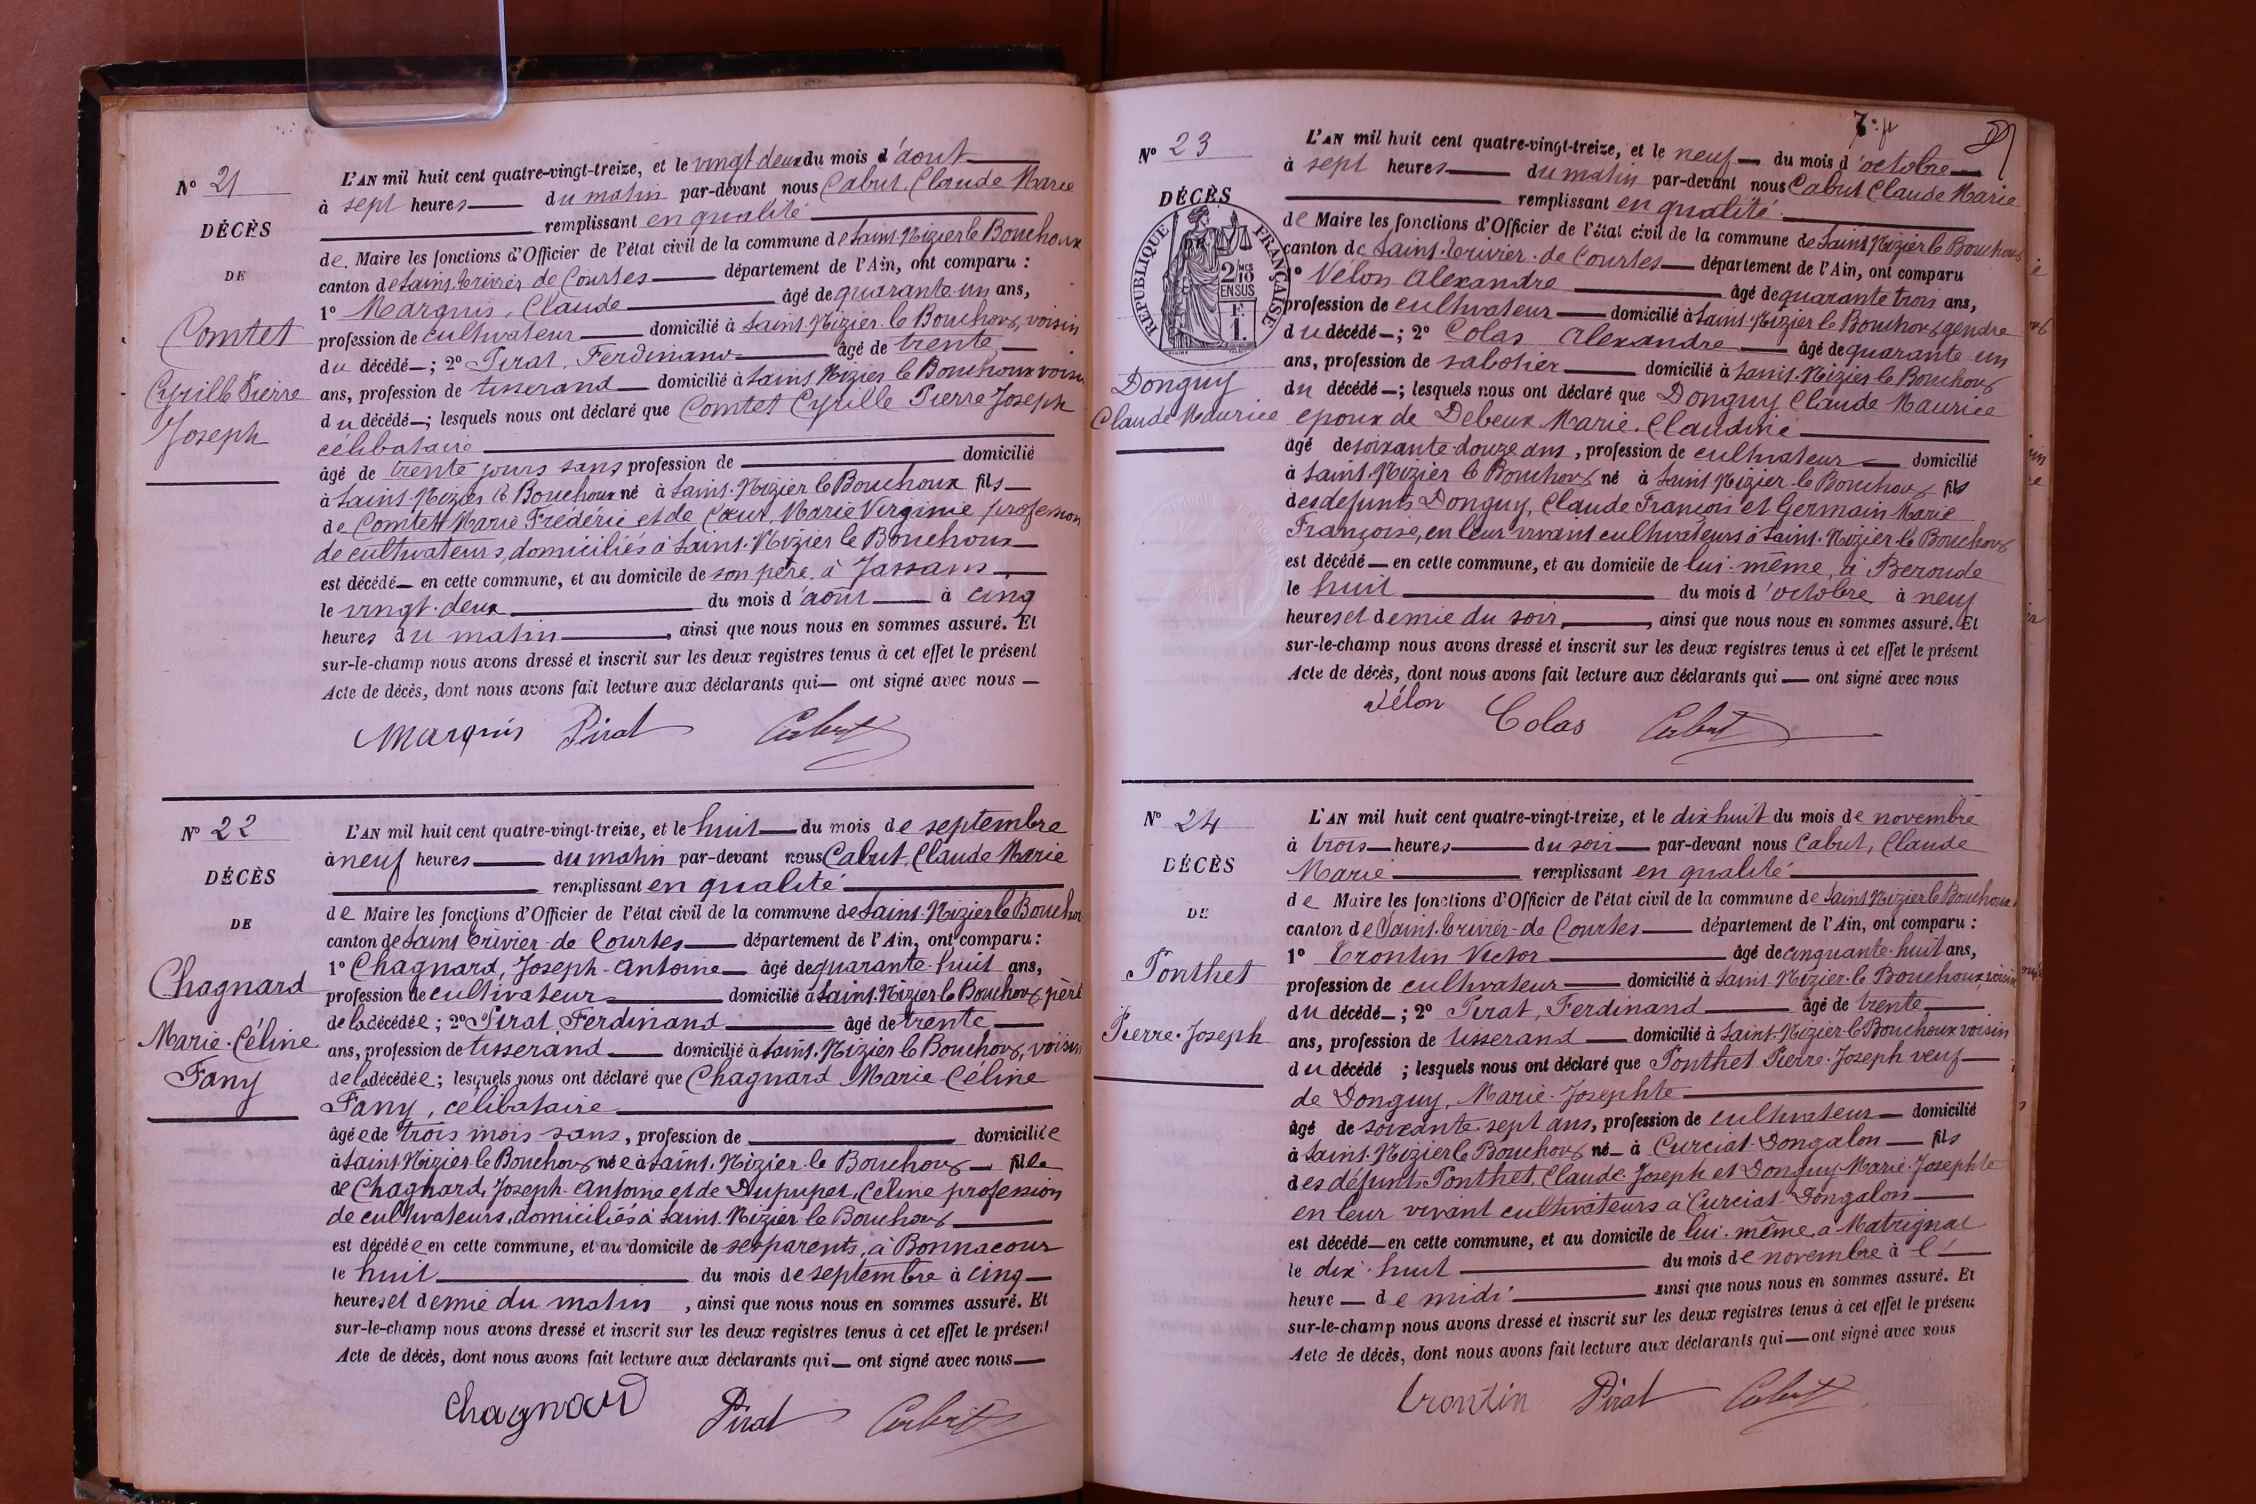 N° 21
DÉCÈS
DE
Comtet
Cyrille Pierre
Joseph
L'AN mil huit cent quatre-vingt-treize, et le vingt deux du mois d'aout
à sept heures du matin par-devant nous Cabut, Claude Marie
remplissant en qualité
de Maire les fonctions d'Officier de l'état civil de la commune de Saint-Nizier le Bouchoux
canton de Saint-Trivier de Courtes département de l'Ain, ont comparu :
1° Marquis, Claude âgé de quarante-un ans,
profession de cultivateur domicilié à Saint-Nizier le Bouchoux, voisin
du décédé ; 2° Pirat, Ferdinand âgé de trente
ans, profession de tisserand domicilié à Saint Nizier le Bouchoux voisin
du décédé ; lesquels nous ont déclaré que Comtet Cyrille Pierre Joseph
célibataire
âgé de trente jours sans profession de domicilié
à Saint-Nizier le Bouchoux né à Saint-Nizier le Bouchoux fils
de Comtet Marie Frédéric et de Cœur, Marie Virginie profession
de cultivateurs, domiciliés à Saint-Nizier le Bouchoux
est décédé en cette commune, et au domicile de son père, à Jassans
le vingt-deux du mois d'août à cinq
heures du matin, ainsi que nous nous en sommes assuré. Et
sur-le-champ nous avons dressé et inscrit sur les deux registres tenus à cet effet le présent
Acte de décès, dont nous avons fait lecture aux déclarants qui ont signé avec nous
Marquis Pirat Cabut
N° 22
DÉCÈS
DE
Chagnard
Marie-Céline
Fany
L'AN mil huit cent quatre-vingt-treize, et le huit du mois de septembre
à neuf heures du matin par-devant nous Cabut, Claude Marie
remplissant en qualité
de Maire les fonctions d'Officier de l'état civil de la commune de Saint-Nizier le Bouchou
canton de Saint Trivier-de Courtes département de l'Ain, ont comparu :
1° Chagnard, Joseph-Antoine âgé de quarante-huit ans,
profession de cultivateur domicilié à Saint-Nizier le Bouchoux, père
de la décédée ; 2° Pirat, Ferdinand âgé de trente
ans, profession de tisserand domicilié à Saint-Nizier le Bouchoux, voisin
de la décédée ; lesquels nous ont déclaré que Chagnard Marie Céline
Fany, célibataire
âgée de trois mois sans, profession de domiciliée
à Saint Nizier-le Bouchoux née à Saint-Nizier-le Bouchoux fille
de Chagnard, Joseph-Antoine et de Dupupet, Céline profession
de cultivateurs, domiciliés à Saint-Nizier le Bouchoux
est décédée en cette commune, et au domicile de ses parents, à Bonnacour
le huit du mois de septembre à cinq
heures et demie du matin, ainsi que nous nous en sommes assuré. Et
sur-le-champ nous avons dressé et inscrit sur les deux registres tenus à cet effet le présent
Acte de décès, dont nous avons fait lecture aux déclarants qui ont signé avec nous
Chagnard Pirat Cabut
N° 23
DÉCÈS
RÉPUBLIQUE FRANÇAISE
2/10 EN SUS
F. 1.
Donguy
Claude Maurice
L'AN mil huit cent quatre-vingt-treize, et le neuf du mois d'octobre
à sept heures du matin par-devant nous Cabut Claude Marie
remplissant en qualité
de Maire les fonctions d'Officier de l'état civil de la commune de Saint Nizier le Bouchoux
canton de Saint-Trivier-de Courtes département de l'Ain, ont comparu
1° Vélon Alexandre âgé de quarante trois ans,
profession de cultivateur domicilié à Saint-Nizier le Bouchoux gendre
du décédé ; 2° Colas Alexandre âgé de quarante un
ans, profession de sabotier domicilié à Saint-Nizier le Bouchoux
du décédé ; lesquels nous ont déclaré que Donguy Claude Maurice
epoux de Debeux Marie-Claudine
âgé de soixante-douze ans, profession de cultivateur domicilié
à Saint-Nizier le Bouchoux né à Saint Nizier-le Bouchoux fils
des defunts Donguy, Claude François et Germain Marie
Françoise, en leur vivant cultivateurs à Saint-Nizier le Bouchoux
est décédé en cette commune, et au domicile de lui-même, à Beroude
le huit du mois d'octobre à neuf
heures et demie du soir, ainsi que nous nous en sommes assuré. Et
sur-le-champ nous avons dressé et inscrit sur les deux registres tenus à cet effet le présent
Acte de décès, dont nous avons fait lecture aux déclarants qui ont signé avec nous
Vélon Colas Cabut
N° 24
DÉCÈS
DE
Ponthet
Pierre-Joseph
L'AN mil huit cent quatre-vingt-treize, et le dix huit du mois de novembre
à trois heures du soir par-devant nous Cabut, Claude
Marie remplissant en qualité
de Maire les fonctions d'Officier de l'état civil de la commune de Saint Nizier le Bouchoux
canton de Saint-Trivier-de Courtes département de l'Ain, ont comparu :
1° Trontin Victor âgé de cinquante-huit ans,
profession de cultivateur domicilié à Saint-Nizier-le Bouchoux, voisin
du décédé ; 2° Pirat, Ferdinand âgé de trente
ans, profession de tisserand domicilié à Saint-Nizier-le Bouchoux voisin
du décédé ; lesquels nous ont déclaré que Ponthet Pierre-Joseph veuf
de Donguy, Marie-Josephte
âgé de soixante-sept ans, profession de cultivateur domicilié
à Saint-Nizier le Bouchoux né à Curciat-Dongalon fils
des défunts Ponthet, Claude-Joseph et Donguy Marie-Josephte
en leur vivant cultivateurs à Curciat-Dongalon
est décédé en cette commune, et au domicile de lui-même, à Matrignat
le dix-huit du mois de novembre à l'
heure de midi ainsi que nous nous en sommes assuré. Et
sur-le-champ nous avons dressé et inscrit sur les deux registres tenus à cet effet le présent
Acte de décès, dont nous avons fait lecture aux déclarants qui ont signé avec nous
trontin Pirat Cabut